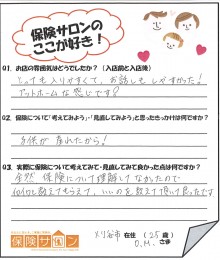 保険サロンの
ここが好き!
Q1. お店の雰囲気はどうでしたか?(入店前と入店後)
とっても入りやすくて、お話もしやすかった!
アットホームな感じです?
Q2. 保険について「考えてみよう」・「見直してみよう」と思ったきっかけは何ですか?
子供が産れたから!
Q3. 実際に保険について考えてみて・見直してみて良かった点は何ですか?
全然保険について理解してなかったので
何個も教えてもらえて、いいのを教えて頂いて良かったです
保険サロン
刈谷市 在住 (25歳)
O.M. さま